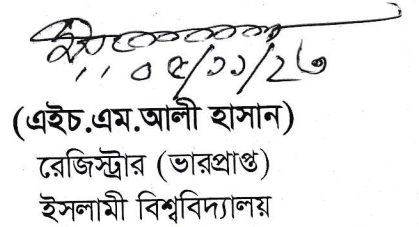 ০৫/১১/২৩
(এইচ.এম.আলী হাসান)
রেজিস্ট্রার (ভারপ্রাপ্ত)
ইসলামী বিশ্ববিদ্যালয়